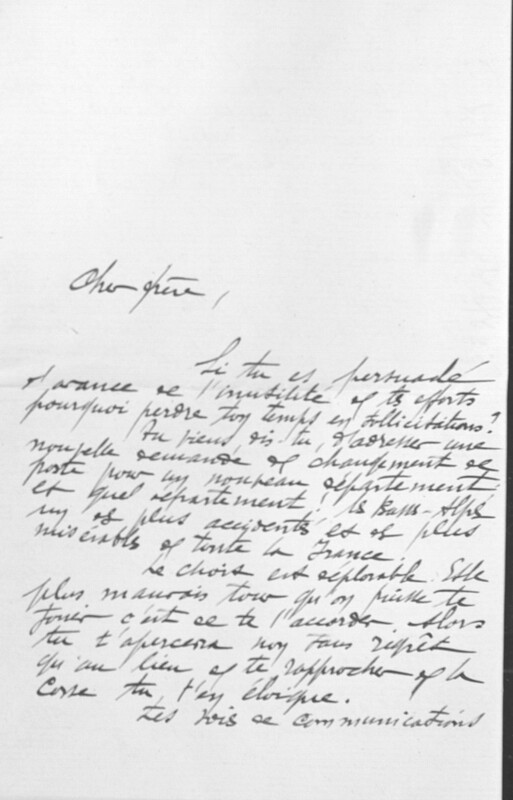 Cher frère,
Si tu es persuadé
d'avance de l'inutilité de tes efforts
pourquoi perdre ton temps en sollicitations?
Tu viens, dis-tu, d'adresser une
nouvelle demande de changement de
poste pour un nouveau département
et quel département! les Basses-Alpes
un des plus accidentés et des plus
misérables de toute la France.
Le choix est déplorable. Et le
plus mauvais tour qu'on puisse te
jouer c'est de te l'accorder. Alors
tu t'apercevra non sans regret
qu'au lieu de te rapprocher de la
Corse tu t'en éloigne.
Les voies de communications